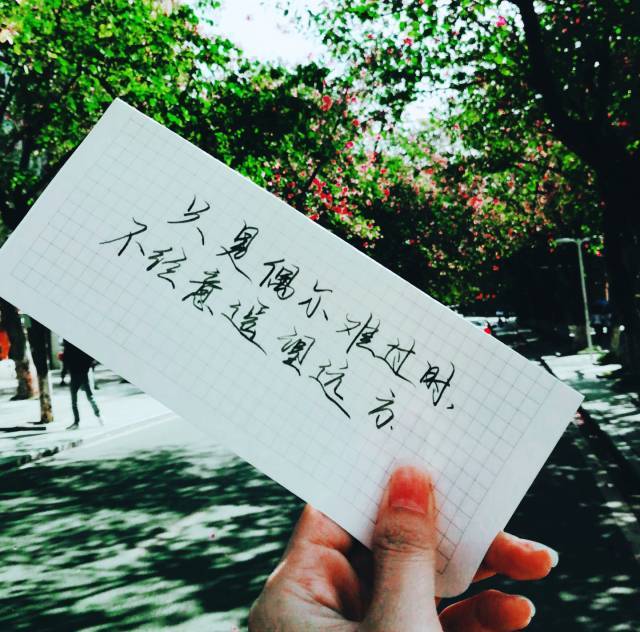 只是偶尔难过时,
不经意遥望远方.